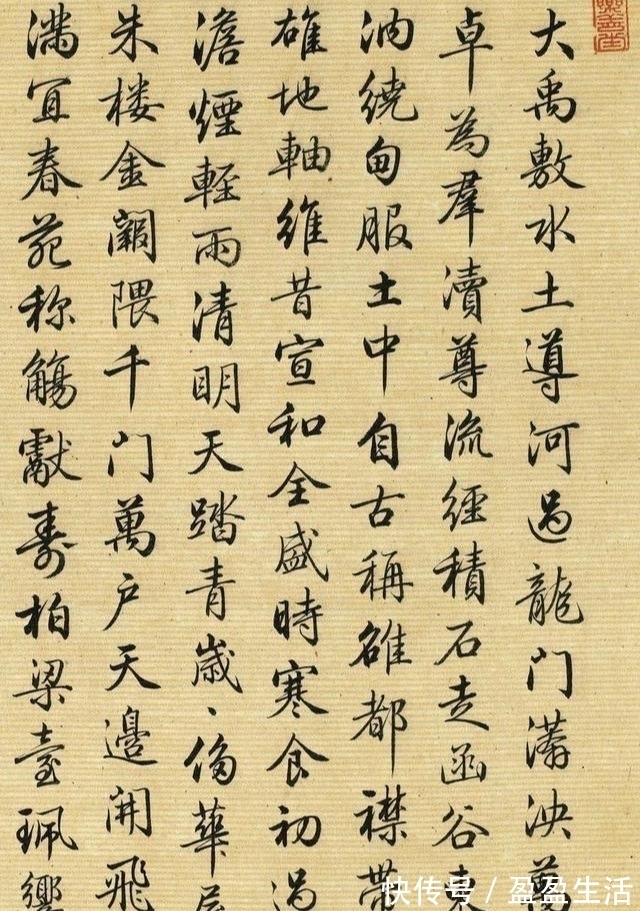 大禹敷水土導河過龍門漭泱
卓為羣瀆尊流經積石走函谷東
汭繞甸服土中自古稱雄都襟帶
雄地軸維昔宣和全盛時寒食初過
澹煙輕雨清明天踏青歲、侈華
朱楼金闕隈千門萬户天邊開飛
滿宜春苑称觴獻壽柏梁臺珮響
快传号/盈盈生活